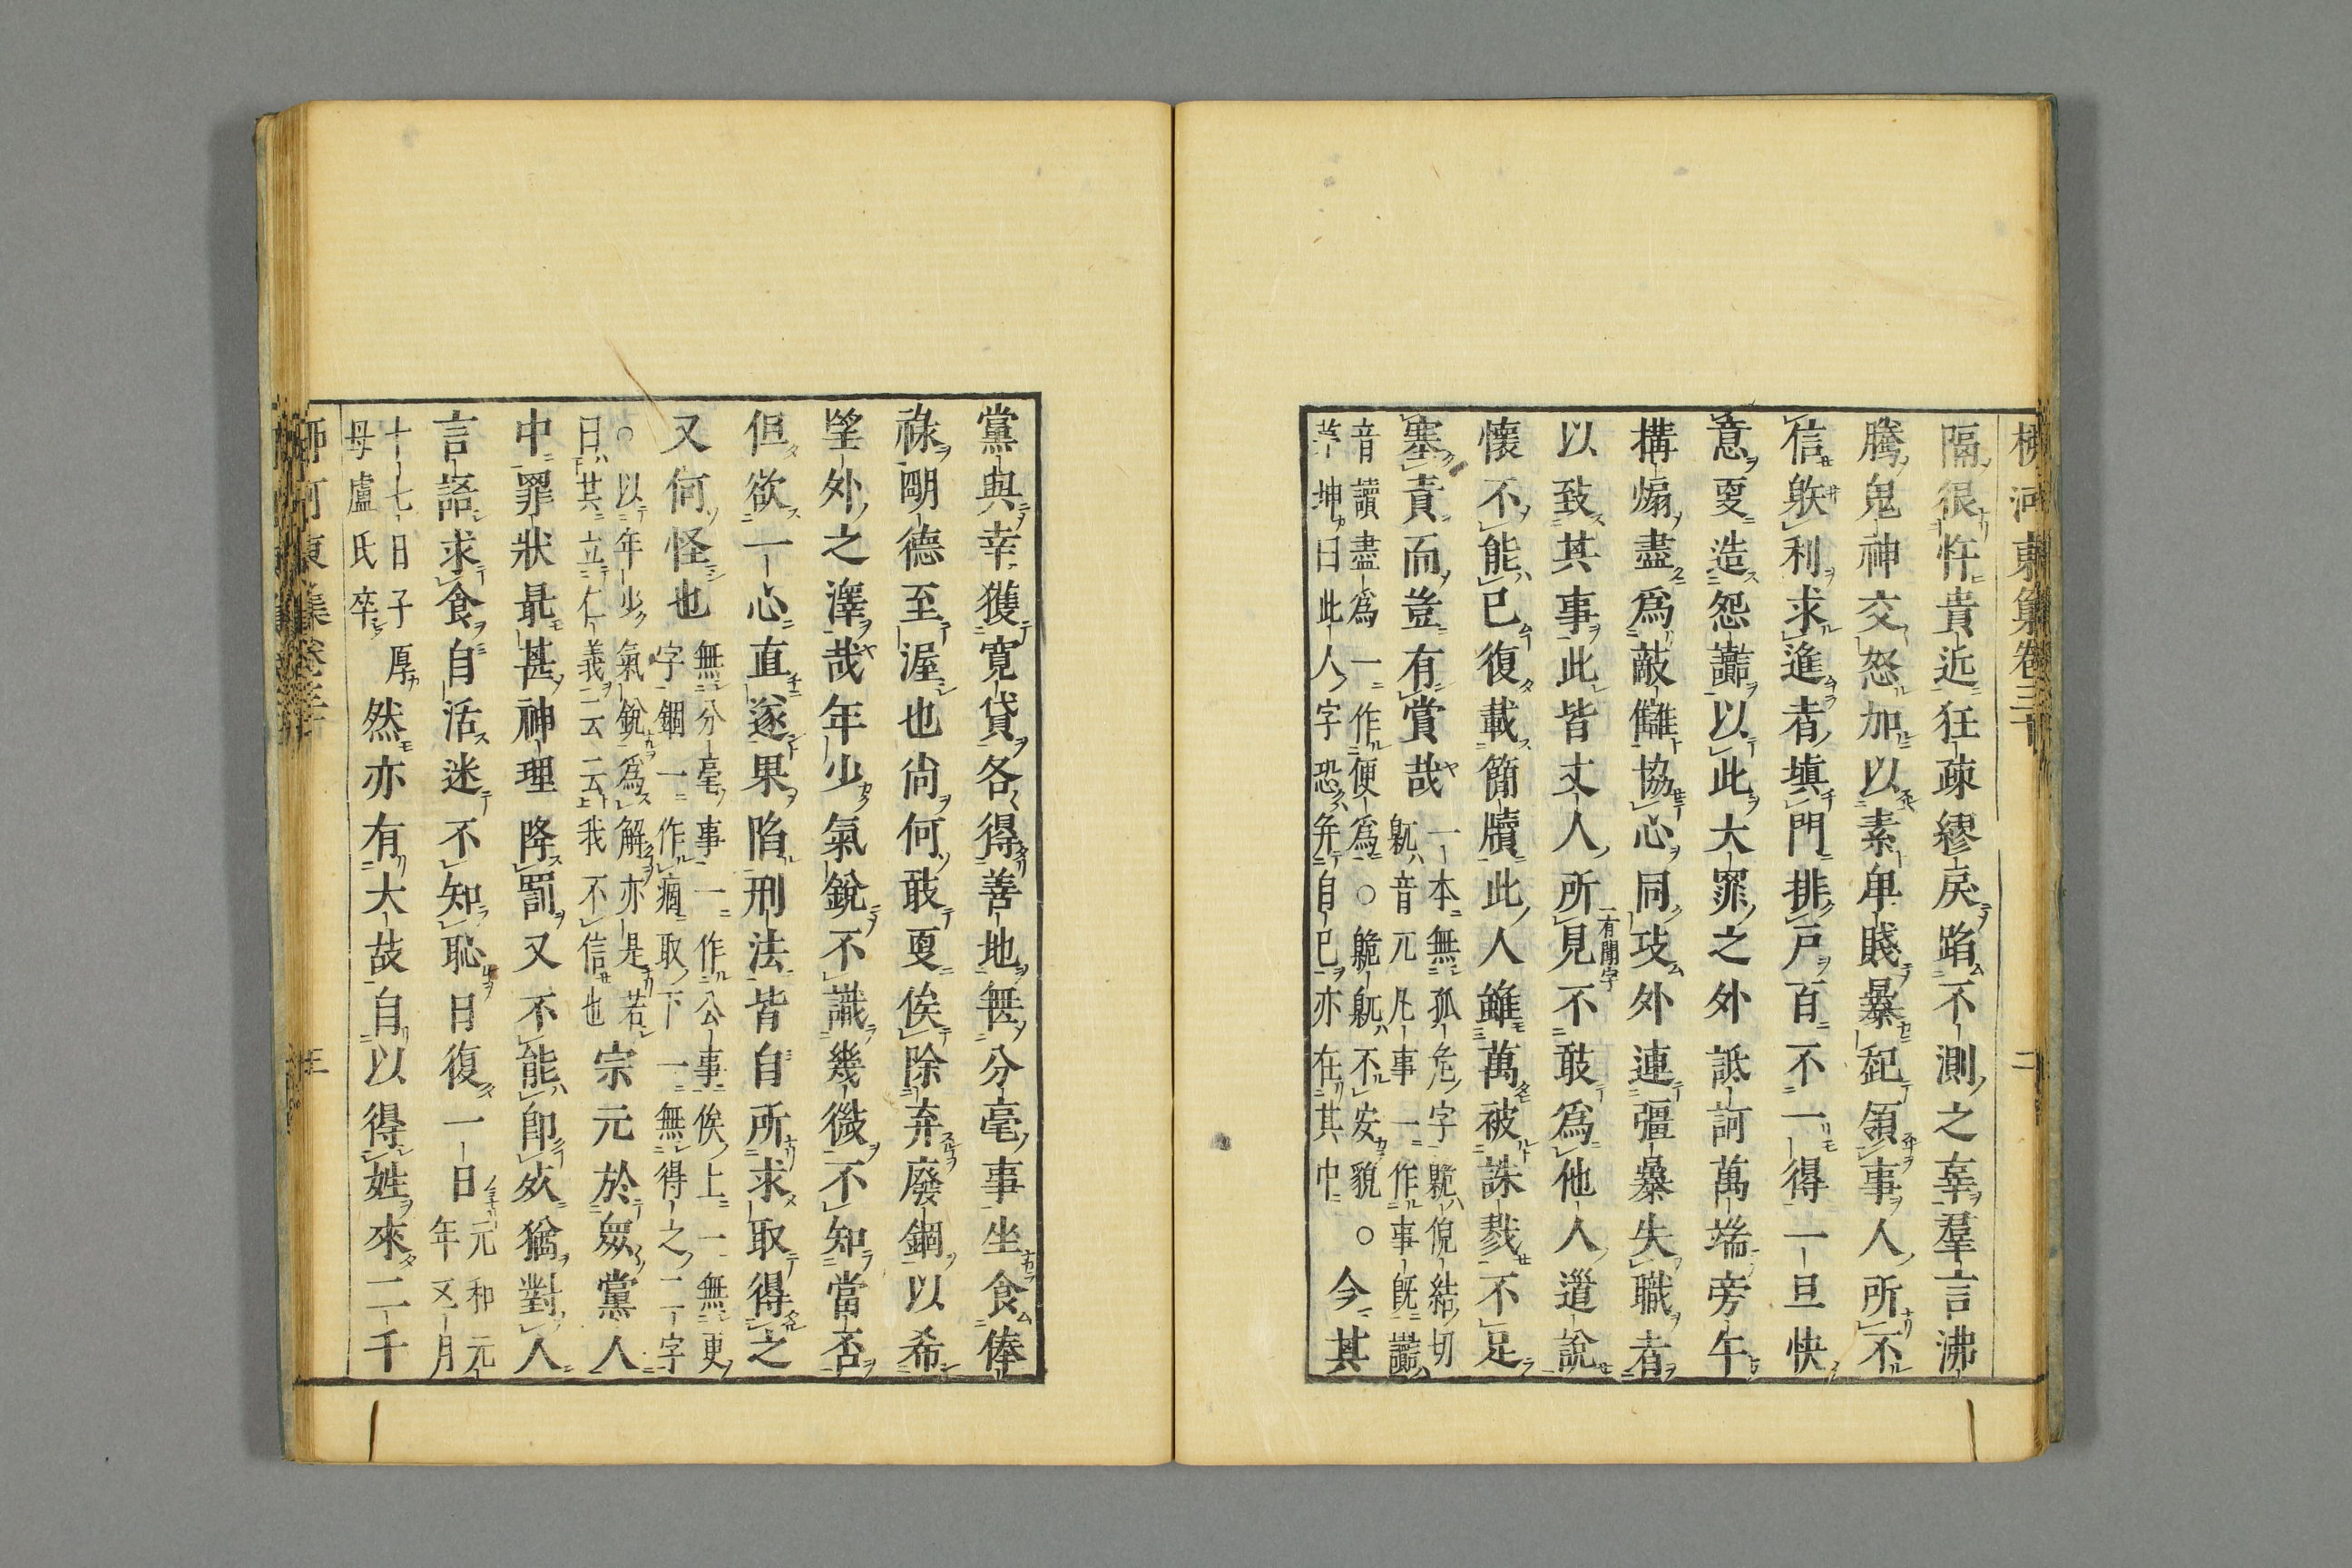 柳河東集卷三十 二
隔很忤貴近狂疎繆戾蹈不測之辜羣言沸
騰鬼神交怒加以素卑賤暴起領事人所不
信䠶利求進者填門排戶百不一得一旦快
意更造怨讟以此大罪之外詆訶萬端旁午
搆煽盡爲敵讎協心同攻外連彊暴失職者
以致其事此皆丈人所見一有聞字不敢爲他人道說
懷不能已復載簡牘此人雖萬被誅戮不足
塞責而豈有賞哉
一本無孤危字臲倪結切
鼿音兀凡事一作事旣讟
音讀盡爲一作便爲○臲鼿不安貌○
茅坤曰此人字恐幷自已亦在其中
今其
黨與幸獲寬貸各得善地無分毫事坐食俸
祿明德至渥也尚何敢更俟除弃廢錮以希
望外之澤哉年少氣銳不識幾微不知當否
但欲一心直遂果陷刑法皆自所求取得之
又何怪也
無分毫事一作公事俟上一無更
字錮一作痼取下一無得之二字
○以年少氣銳爲解亦是若
曰其立仁義云云我不信也
宗元於眾黨人
中罪狀最甚神理降罰又不能卽死猶對人
言語求食自活迷不知恥日復一日
元和元
年五月
十七日子厚
母盧氏卒
然亦有大故自以得姓來二千
柳河東集卷三十 三